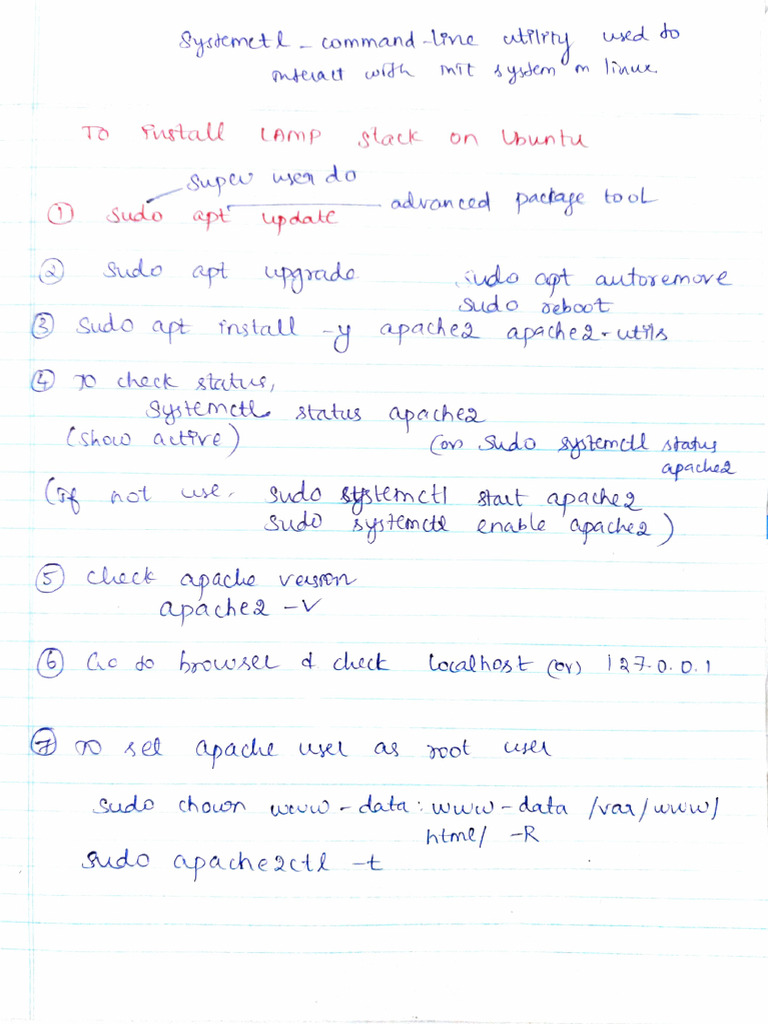 Systemctl - command-line utility used to
interact with init system on linux.
To install LAMP stack on Ubuntu
super user do
advanced package tool
① sudo apt update
② sudo apt upgrade
sudo apt autoremove
sudo reboot
③ sudo apt install -y apache2 apache2-utils
④ To check status,
systemctl status apache2
(show active)
(or) sudo systemctl status
apache2
(If not use, sudo systemctl start apache2
sudo systemctl enable apache2)
⑤ check apache version
apache2 -v
⑥ Go to browser & check localhost (or) 127.0.0.1
⑦ To set apache user as root user
sudo chown www-data:www-data /var/www/
html/ -R
sudo apache2ctl -t